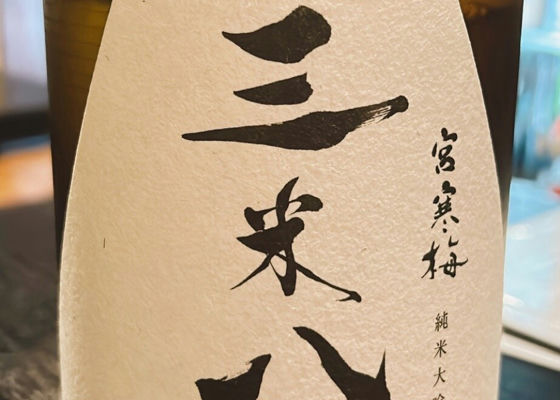 三米八
宮寒梅
純米大吟